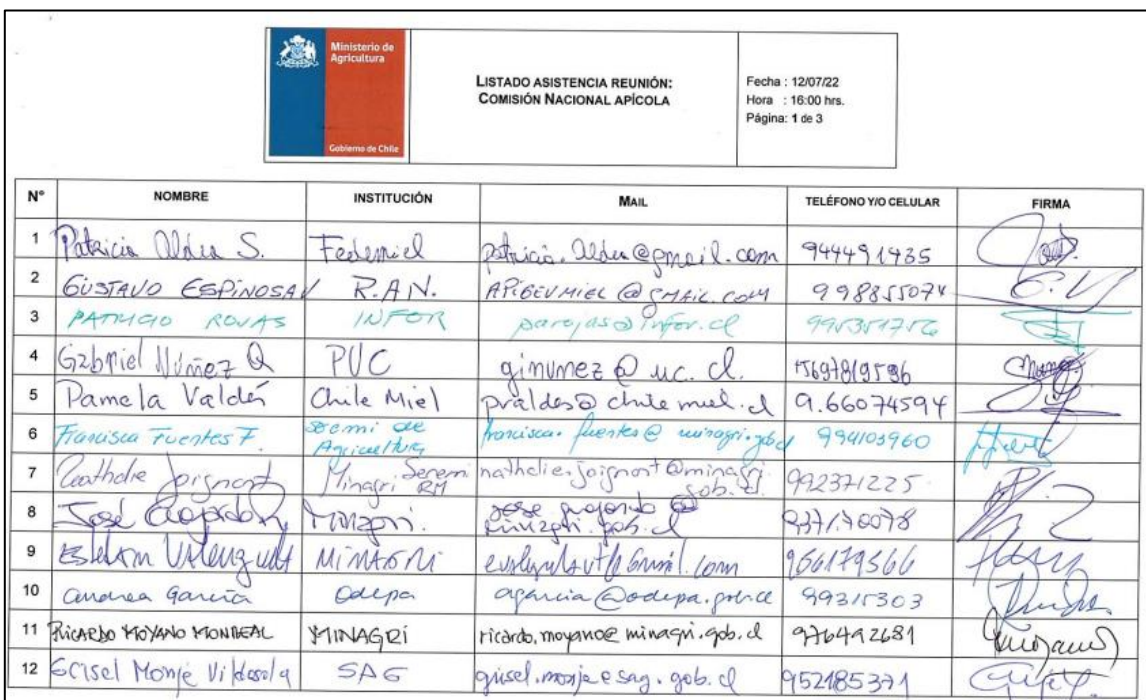 Ministerio de
Agricultura
Gobierno de Chile
LISTADO ASISTENCIA REUNIÓN:
COMISIÓN NACIONAL APÍCOLA
Fecha : 12/07/22
Hora : 16:00 hrs.
Página: 1 de 3
N° NOMBRE INSTITUCIÓN MAIL TELÉFONO Y/O CELULAR FIRMA
1 Patricia Aldea S. Fedemiel patricia.aldea@gmail.com 944491435
2 GUSTAVO ESPINOSA V R.A.N. APIGEVMIEL@GMAIL.COM 998855074
3 PATRICIO ROJAS INFOR parojas@infor.cl 995351756
4 Gabriel Núñez Q PUC ginunez@uc.cl. +5697819596
5 Pamela Valdés Chile Miel pvaldes@chilemiel.cl 9.66074594
6 Francisca Fuentes F. Seremi de Agricultura francisca.fuentes@minagri.gob.cl 994103960
7 Nathalie Joignant Minagri Seremi RM nathalie.joignant@minagri.gob.cl 992371225
8 José Minagri. @minagri.gob.cl
9 Esteban Valenzuela MINAGRI 966179566
10 andrea García Odepa agarcia@odepa.gob.cl 99315303
11 RICARDO MOYANO MONREAL MINAGRI ricardo.moyano@minagri.gob.cl 976492681
12 Grisel Monje Vildosola SAG grisel.monje@sag.gob.cl 952185371